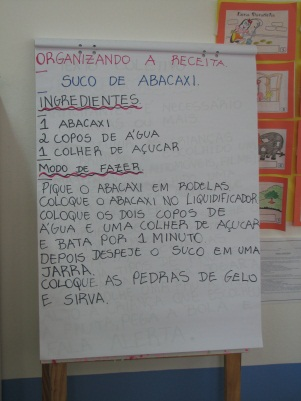 ORGANIZANDO A RECEITA
SUCO DE ABACAXI.
INGREDIENTES
1 ABACAXI
2 COPOS DE ÁGUA
1 COLHER DE AÇUCAR
MODO DE FAZER
PIQUE O ABACAXI EM RODELAS
COLOQUE O ABACAXI NO LIQUIDIFICADOR
COLOQUE OS DOIS COPOS DE
ÁGUA E UMA COLHER DE AÇUCAR
E BATA POR 1 MINUTO
DEPOIS DESPEJE O SUCO EM UMA
JARRA.
COLOQUE AS PEDRAS DE GELO
E SIRVA.